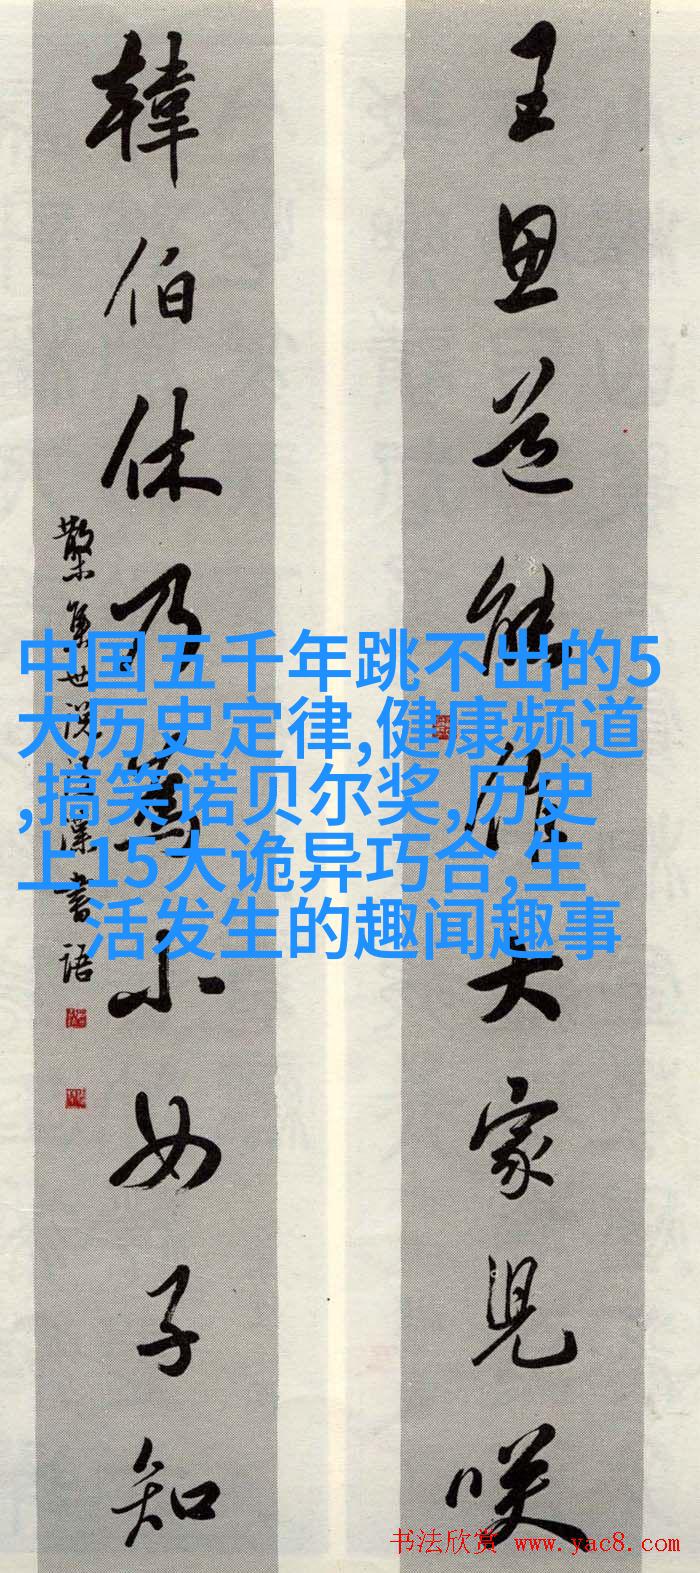 王思道能作大家兒咲
韓伯休乃為小女子知
集世說後漢書語
中国五千年跳不出的5
大历史定律,健康频道
,搞笑诺贝尔奖,历史
上15大诡异巧合,生
活发生的趣闻趣事
书法欣赏 www.yac8.com